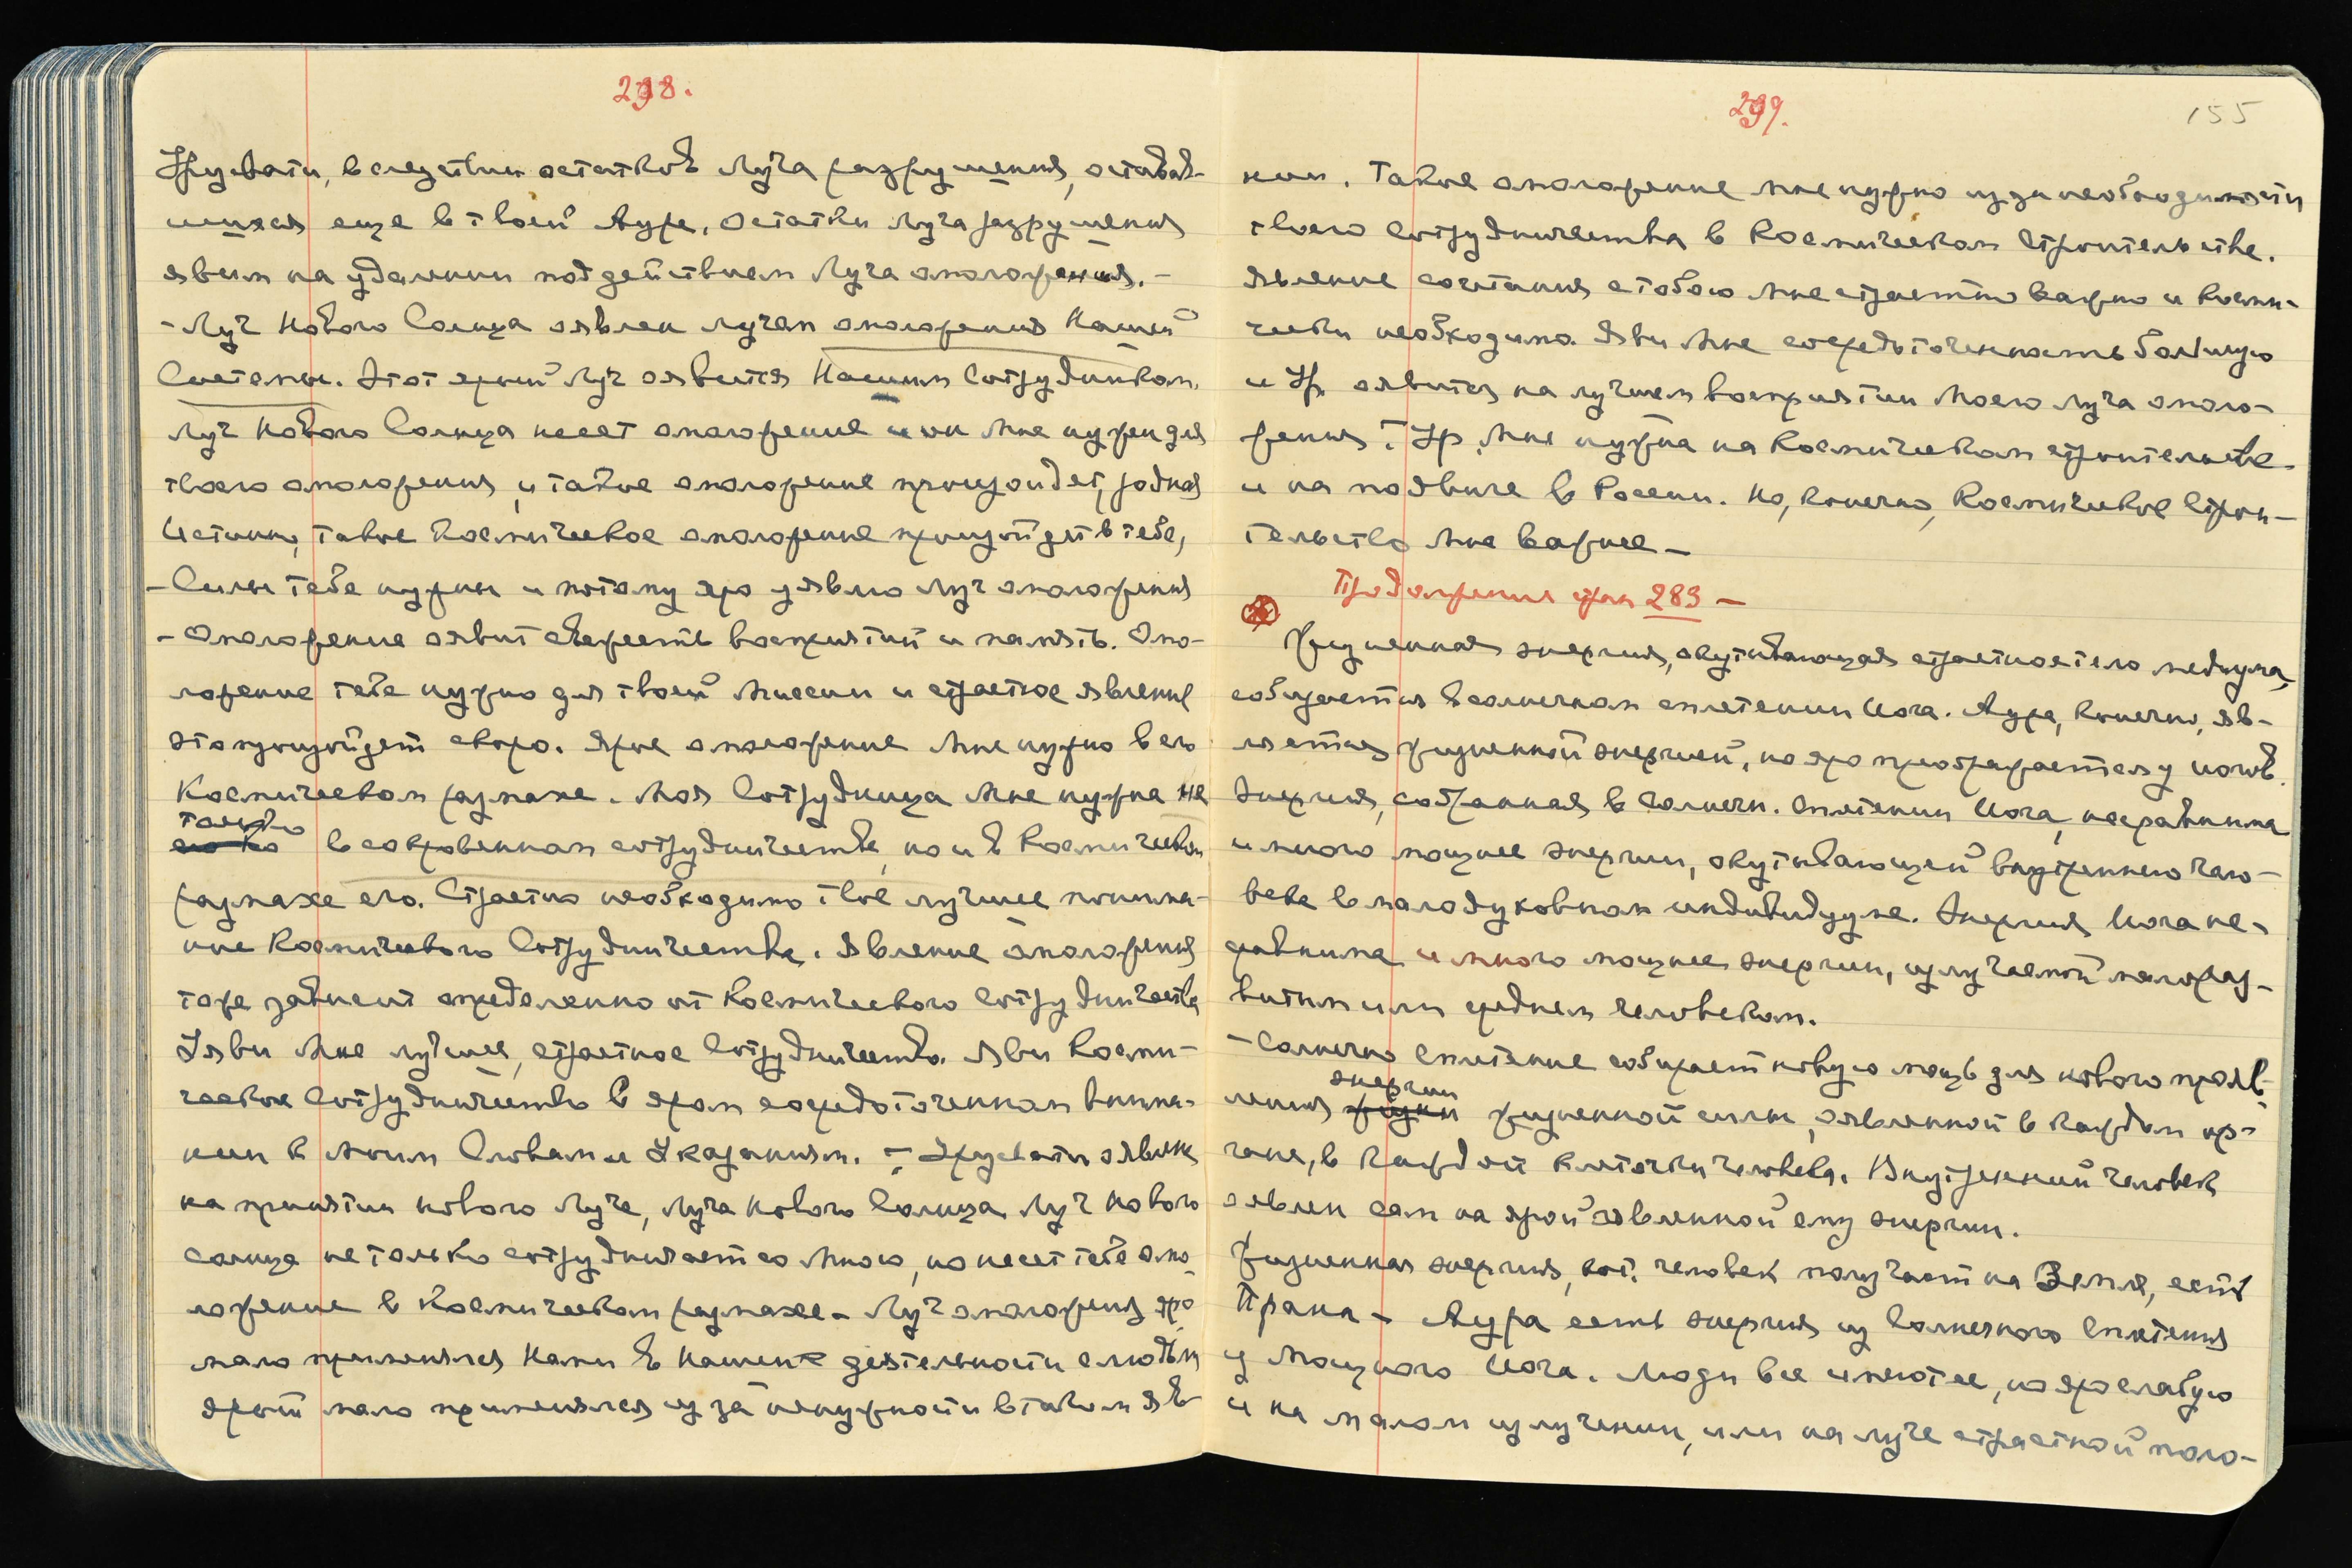 298.
Урусвати, вследствии остатков Луча разрушения, оставав-
шихся еще в твоей Ауре. Остатки Луча разрушения
явим на удалении под действием Луча омоложения. –
– Луч Нового Солнца оявлен лучом омоложения Нашей
Системы. Этот ярый Луч оявится Нашим Сотрудником.
Луч Нового Солнца несет омоложение и он Мне нужен для
твоего омоложения, и такое омоложение произойдет, родная
Истинно, такое Космическое омоложение произойдет в тебе,
– Силы тебе нужны и потому яро уявлю Луч омоложения
– Омоложение оявит свежесть восприятий и память. Омо-
ложение тебе нужно для твоей Миссии и страстное явление
это произойдет скоро. Ярое омоложение Мне нужно в его
Космическом размахе. Моя Сотрудница Мне нужна не
только
в сокровенном сотрудничестве, но и в Космическом
размахе его. Страстно необходимо твое лучшее понима-
ние Космического Сотрудничества. Явление омоложения
тоже зависит определенно от Космического сотрудничества
Уяви Мне лучшее, страстное Сотрудничество. Яви Косми-
ческое Сотрудничество в яром сосредоточенном внима-
нии к Моим Словам и Указаниям. – Урусвати оявлена
на принятии нового Луча, Луча Нового Солнца. Луч Нового
Солнца не только сотрудничает со Мною, но несет тебе омо-
ложение в Космическом размахе – Луч омоложения яро
мало применялся Нами в Нашей деятельности с людьми
ярый мало применялся из за ненужности в таком яв-
299.
155
нии. Такое омоложение Мне нужно из за необходимости
твоего сотрудничества в Космическом Строительстве.
Явление сочетания с тобою Мне страстно важно и косми-
чески необходимо. Яви Мне сосредоточенность большую
и Ур. оявится на лучшем восприятии Моего Луча омоло-
жения. Ур. Мне нужна на Космическом строительстве
и на подвиге в России. Но, конечно, Космическое Строи-
тельство Мне важнее –
Продолжение стр. 289 –
Жизненная энергия, окутывающая страстное тело медиума,
собирается в солнечном сплетении Йога. Аура, конечно, яв-
ляется жизненной энергией, но яро преображается у йогов.
Энергия, собранная в солнечн. сплетении Йога, несравнима
и много мощнее энергии, окутывающей внутреннего чело-
века в малодуховном индивидууме. Энергия Йога не-
сравнима и много мощнее энергии, излучаемой малораз-
витым или средним человеком.
– Солнечно сплетение собирает новую мощь для нового прояв-
энергии
ления жизненной силы, оявленной в каждом ор-
гане, в каждой клеточки человека. Внутренний человек
оявлен сам на ярой явленной ему энергии.
Жизненная энергия, кот. человек получает на Земле, есть
Прана – Аура есть энергия из Солнечного Сплетения
у мощного Йога. Люди все имеют ее, но яро слабую
и на малом излучении, или на луче страстной поло-